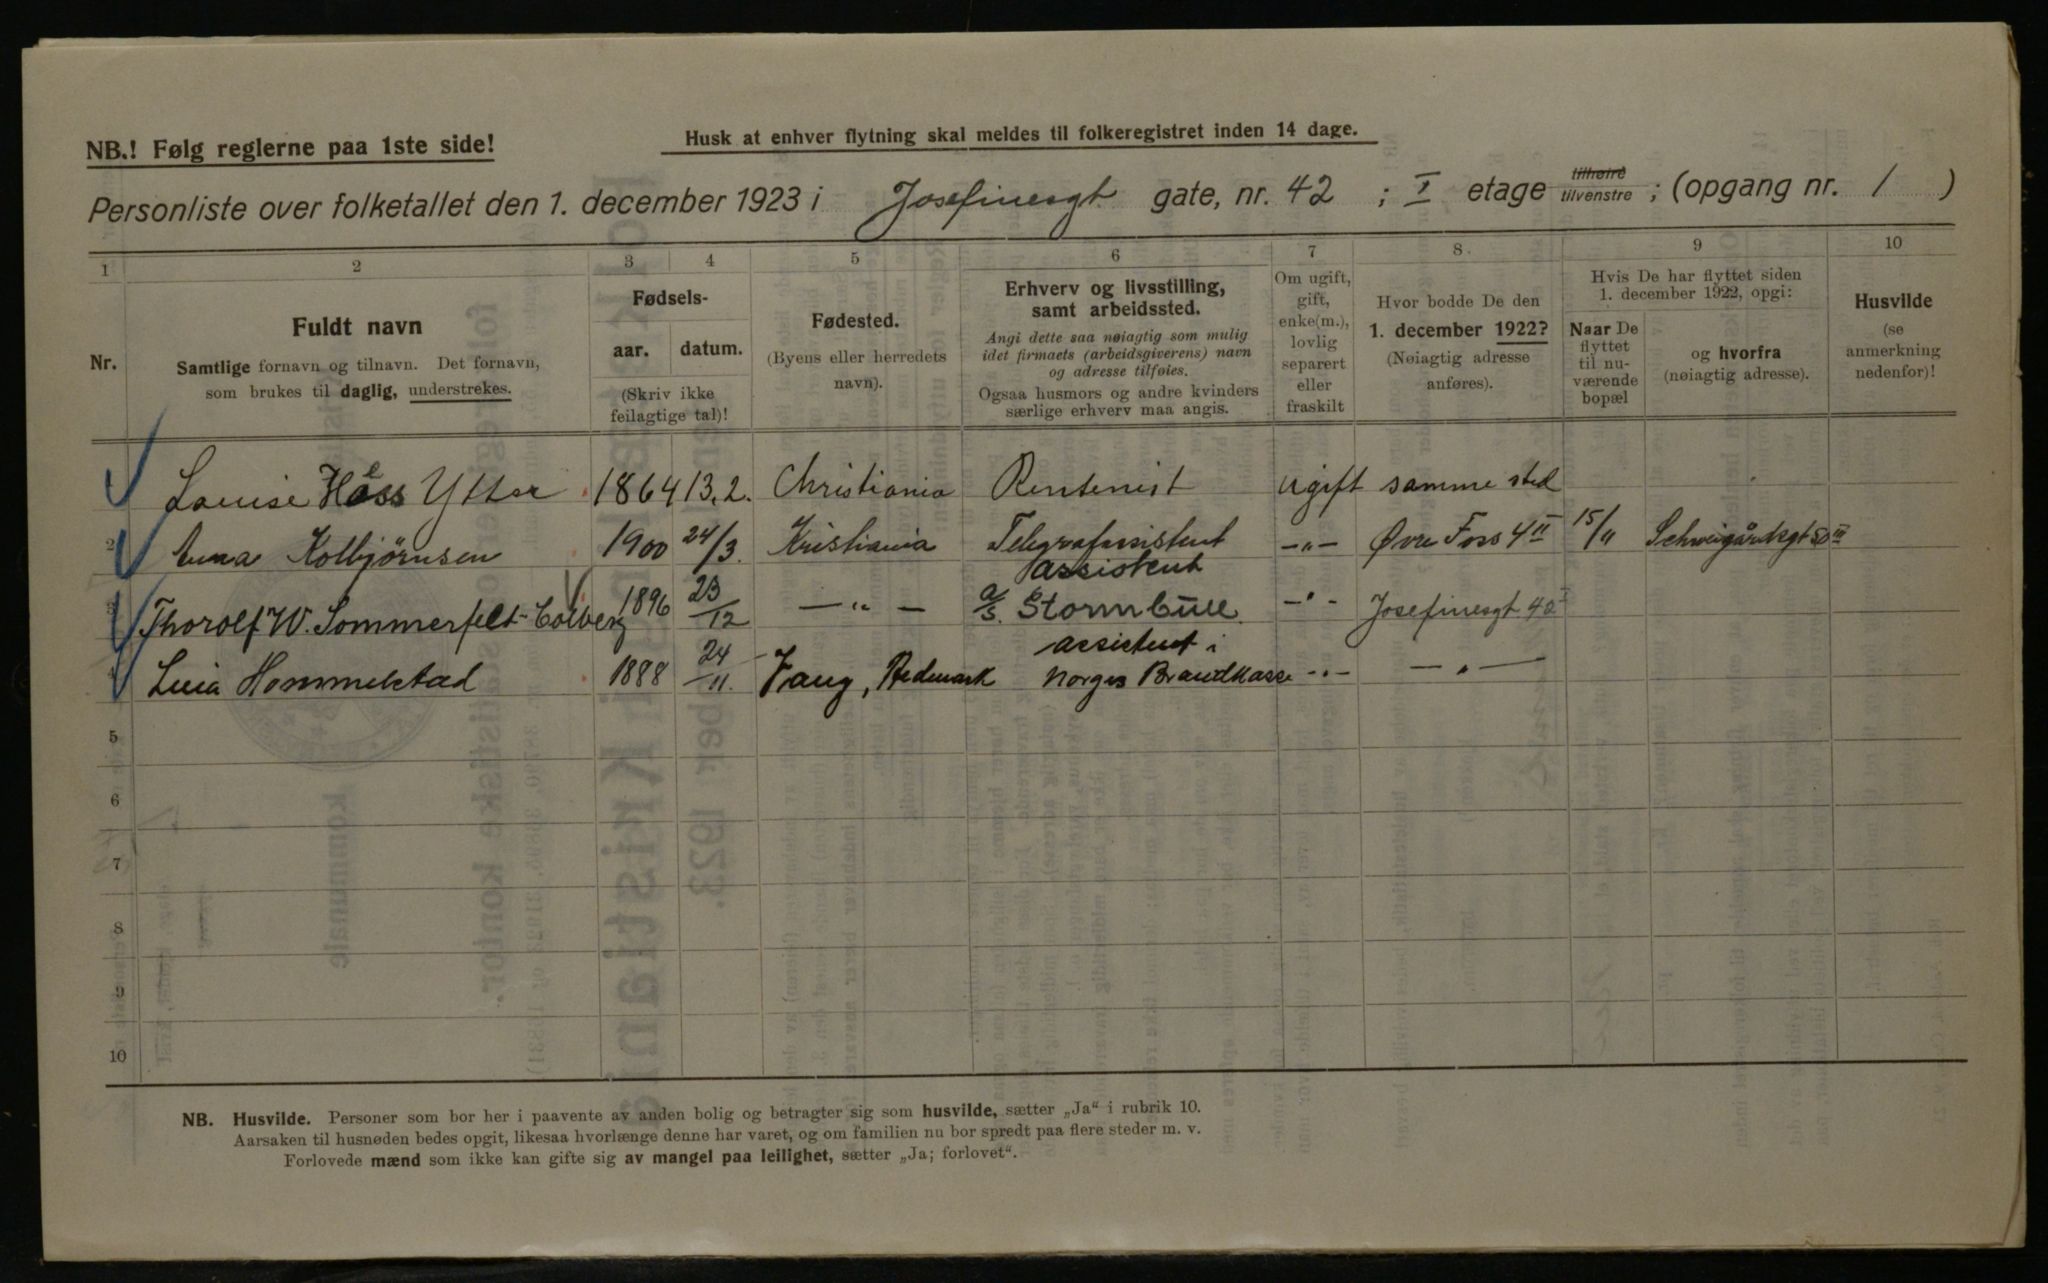 NB.! Følg reglerne paa 1ste side!
Husk at enhver flytning skal meldes til folkeregistret inden 14 dage.
Personliste over folketallet den 1. december 1923 i Josefinesgt gate, nr. 42 ; I etage tilhøire tilvenstre ; (opgang nr. 1 )
1 2 3 4 5 6 7 8. 9 10
Nr.
Fuldt navn
Samtlige fornavn og tilnavn. Det fornavn,
som brukes til daglig, understrekes.
Fødsels-
aar. datum.
(Skriv ikke
feilagtige tal)!
Fødested.
(Byens eller herredets
navn).
Erhverv og livsstilling,
samt arbeidssted.
Angi dette saa nøiagtig som mulig
idet firmaets (arbeidsgiverens) navn
og adresse tilføies.
Ogsaa husmors og andre kvinders
særlige erhverv maa angis.
Om ugift,
gift,
enke(m.),
lovlig
separert
eller
fraskilt
Hvor bodde De den
1. december 1922?
(Nøiagtig adresse
anføres).
Hvis De har flyttet siden
1. december 1922, opgi:
Naar De
flyttet
til nu-
værende
bopæl
og hvorfra
(nøiagtig adresse).
Husvilde
(se
anmerkning
nedenfor)!
Louise Hess Ytter 1864 13.2. Christiania Rentenist ugift samme sted
2 Anna Kolbjørnsen 1900 24/3. Kristiania Telegrafassistent —„— Øvre Foss 4 II 15/11 Schweigårdsgt 50 III
3 Thorolf W. Sommerfelt-Colberg 1896 23/12 —„— assistent
A/S. Stormbull —„— Josefinesgt. 42 I
4 Lucia Hommelstad 1888 24/11. Vang, Hedemark assistent i
Norges Brandkasse —„— —„—
5
6
7
8
9
10
NB. Husvilde. Personer som bor her i paavente av anden bolig og betragter sig som husvilde, sætter „Ja“ i rubrik 10.
Aarsaken til husnøden bedes opgit, likesaa hvorlænge denne har varet, og om familien nu bor spredt paa flere steder m. v.
Forlovede mænd som ikke kan gifte sig av mangel paa leilighet, sætter „Ja; forlovet“.